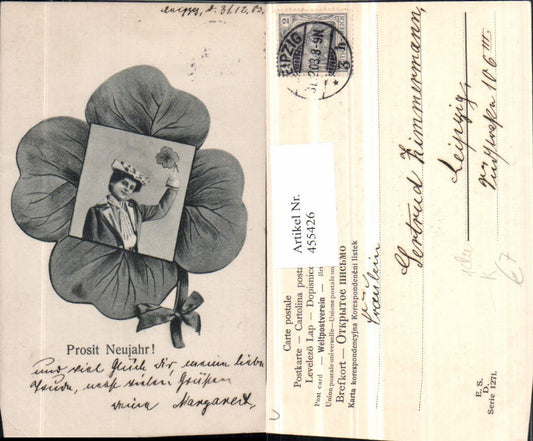 Leipzig, d. 31/12.03.
Prosit Neujahr!
und viel Glück Dir, meine liebe
Trude, nebst vielen Grüßen
deine Margarete
2
LEIPZIG
12.03. 8-9N
Artikel Nr.
455426
Carte postale
Postkarte — Cartolina posta
Levelező Lap — Dopisnice
Post card — Weltpostverein —
Union postale universelle — Unione postale un
Brefkort — Открытое письмо
Karta korespondencyjna Korespondenční lístek
Fräulein
Gertrud Zimmermann,
Leipzig,
Südstraße 106 III.
K
€7
E. S.
D.
Serie 1271.